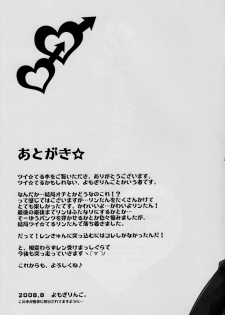 あとがき☆
ツイ☆てる本をご覧いただき、ありがとうございます。
ツイ☆てるかもしれない、よもぎりんごとかいう者です。
なんだか…結局オチとかどうなのこれ！？
って感じではございますが、リンたんをたくさんかけて
とても楽しかったです。かわいいよ…かわいいよリンたん！
最後の最後までリンはふたなりにするかとか…
そーゆうパンツを穿かせるかとか色々悩みましたが、
結局ツイ☆てるリンたんで落ち着きました。
だって！レンきゅんに突っ込むにはコレしかなかったんだ！
と、相変わらずレン受けまっしぐらで
今後も突っ走っていきます
これからも、よろしくね♪
2008.8 よもぎりんご。